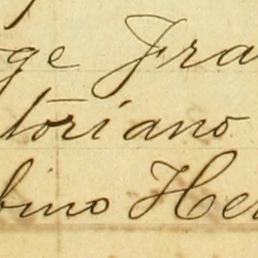 ge Fra
toriano
bino He